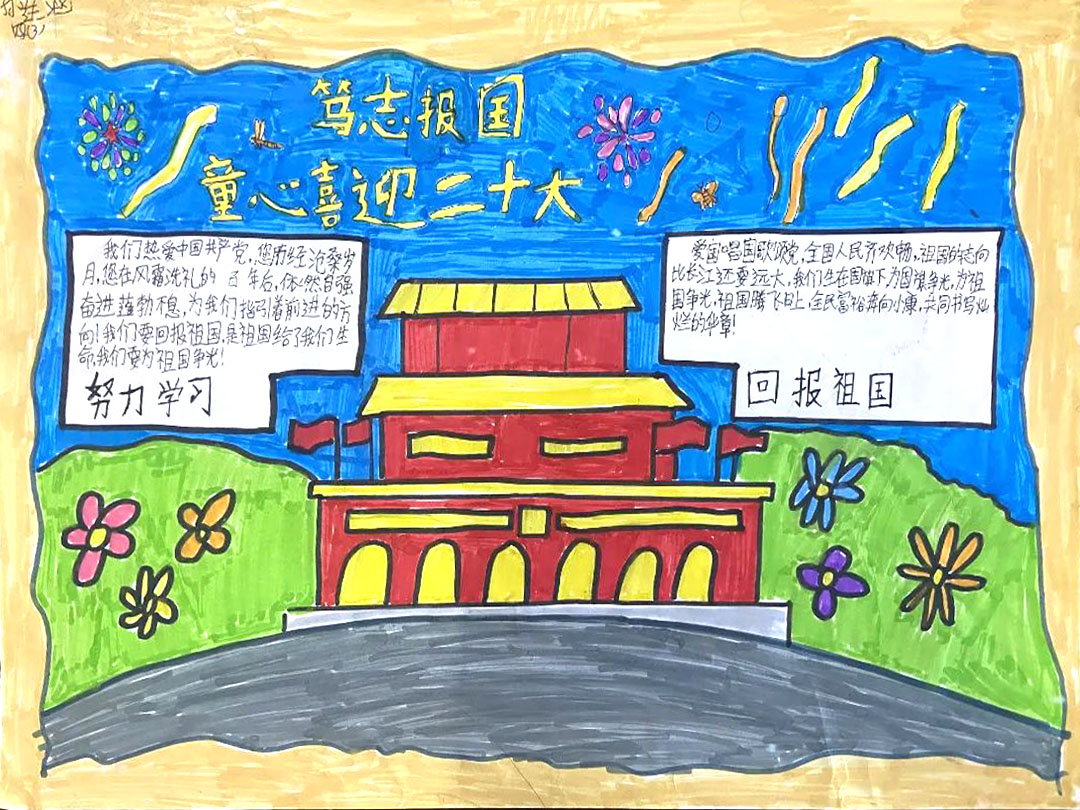 四(3)
笃志报国
童心喜迎二十大
我们热爱中国共产党,您历经沧桑岁
月,您在风霜洗礼的 百年后,依然自强
奋进蓬勃不息,为我们指引着前进的方
向!我们要回报祖国,是祖国给了我们生
命,我们要为祖国争光!
努力学习
爱国唱国歌颂党,全国人民齐欢畅,祖国的志向
比长江还要远大,我们生在国旗下为国旗争光,为祖
国争光,祖国腾飞日上,全民富裕奔向小康,共同书写灿
烂的华章!
回报祖国